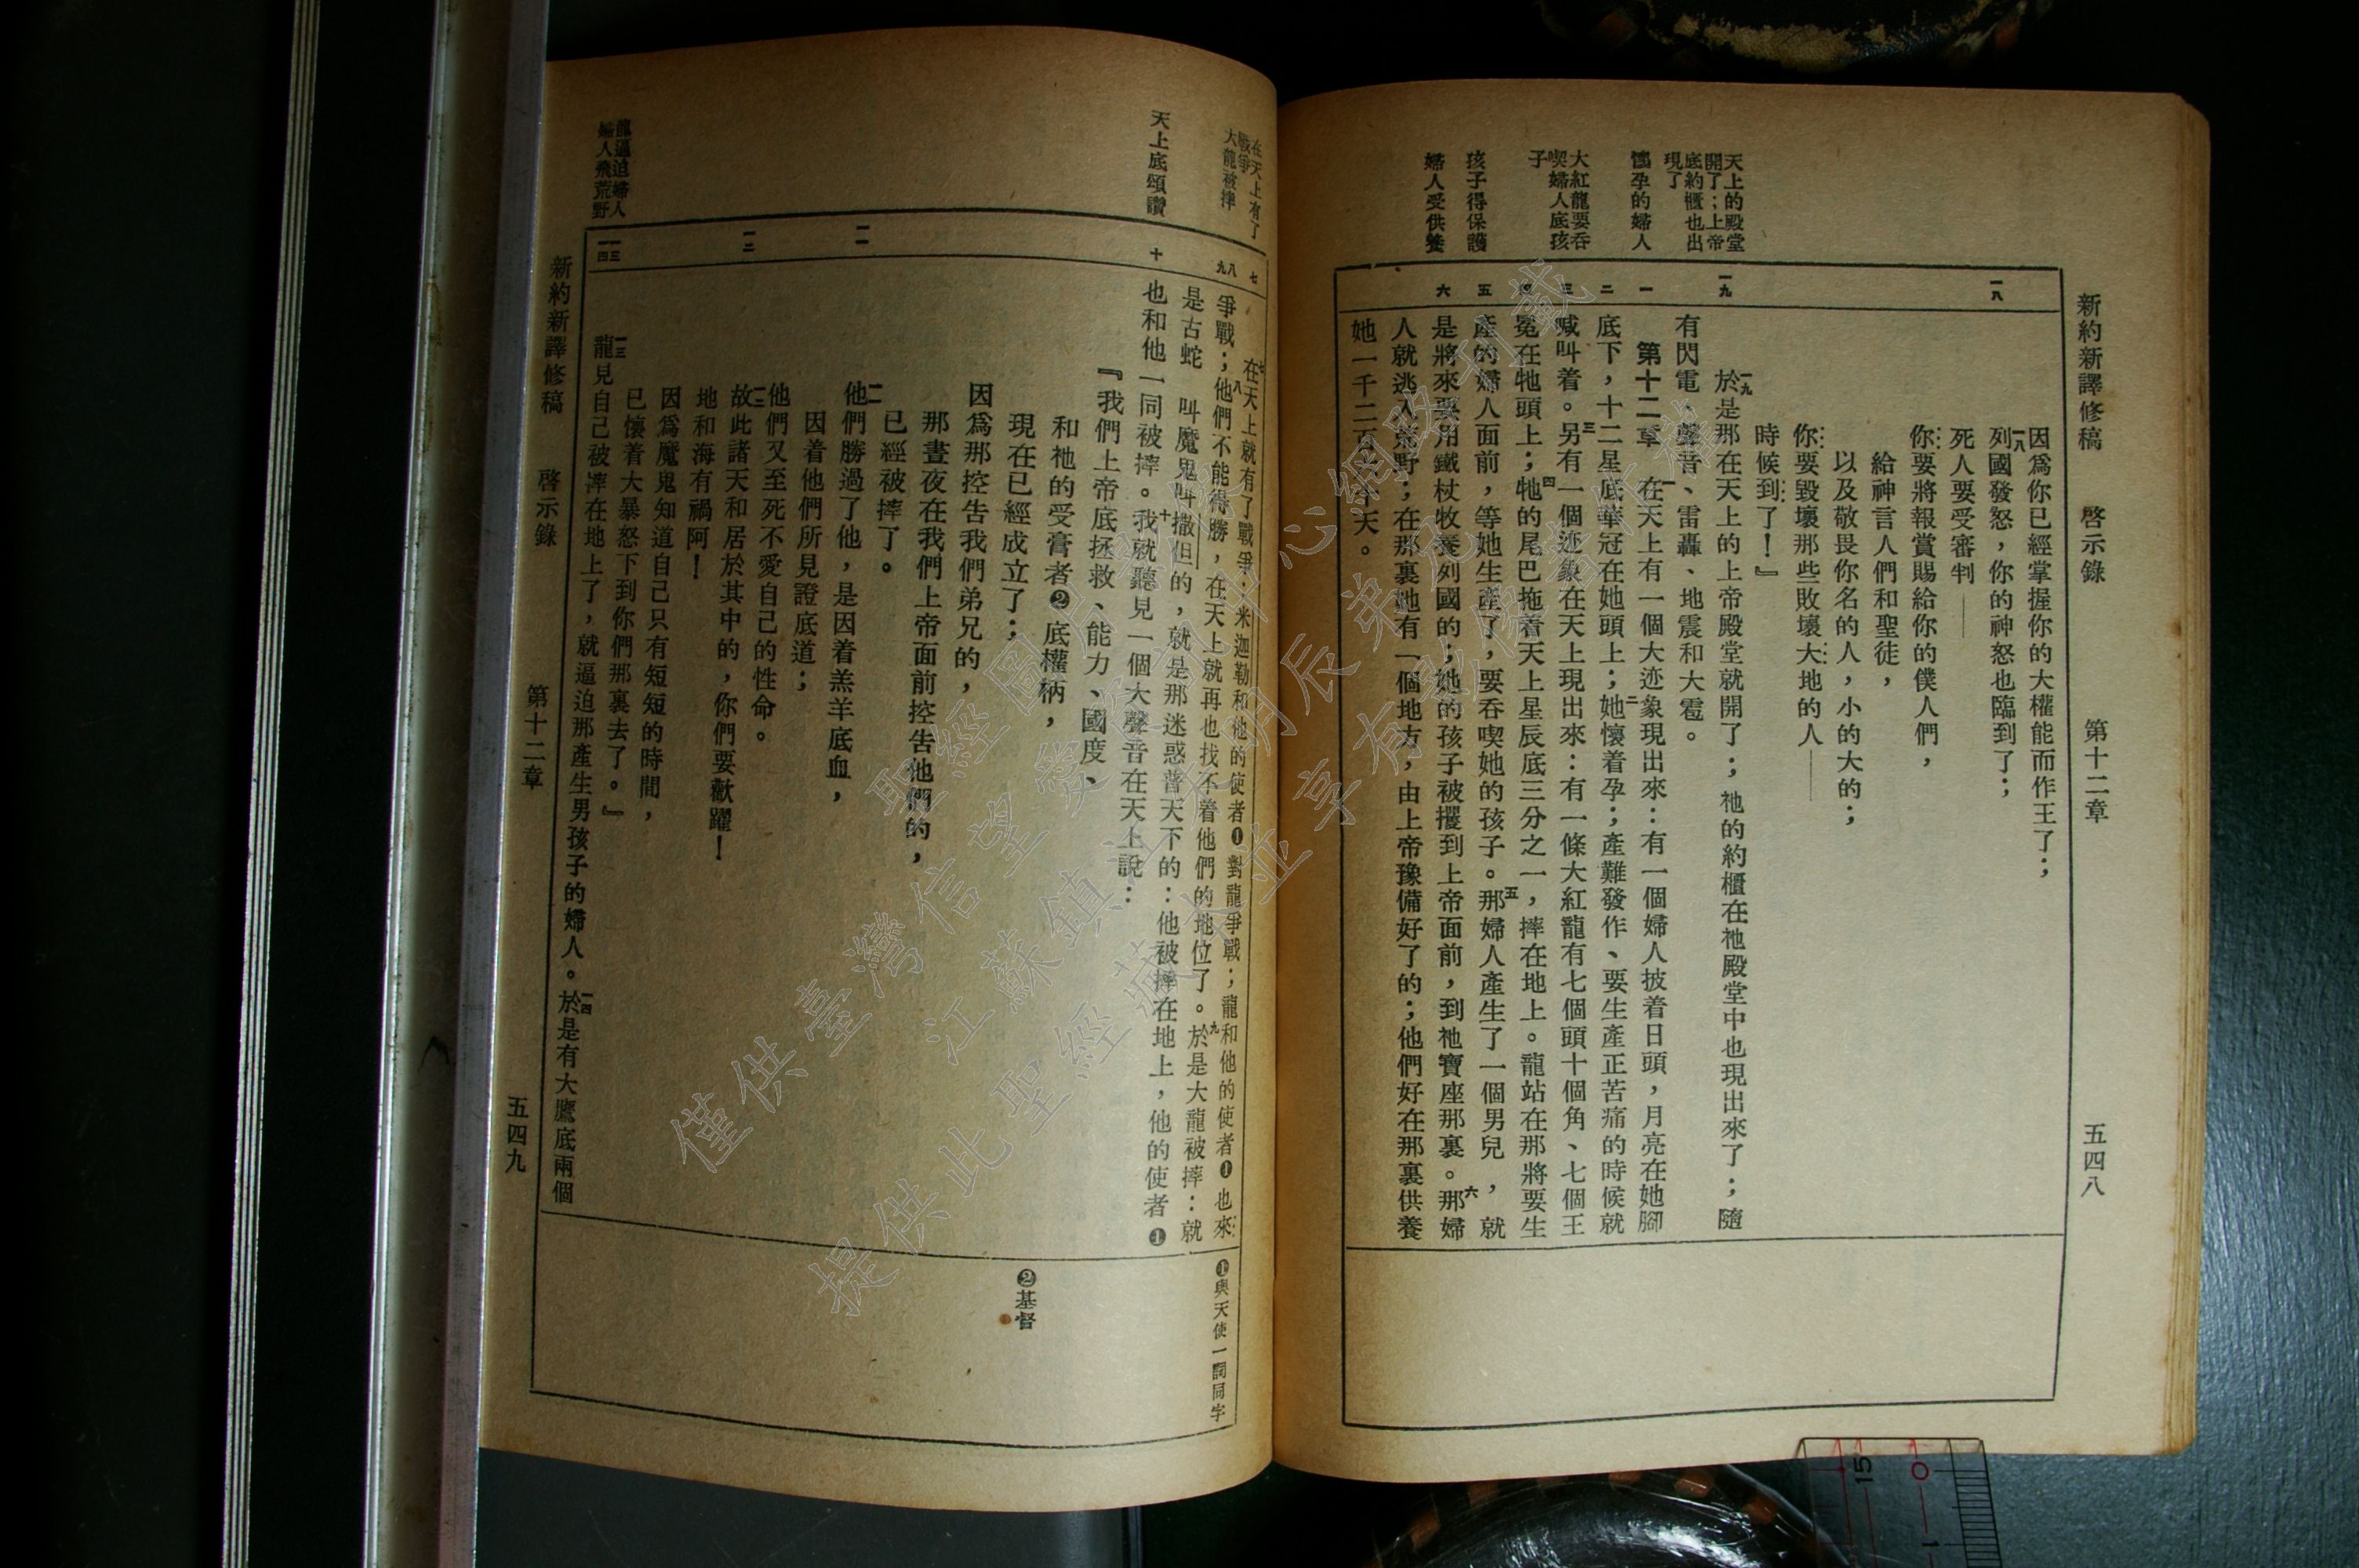 新約新譯修稿　啓示錄　第十二章　五四八
一八
因爲你已經掌握你的大權能而作王了；
一八列國發怒，你的神怒也臨到了；
死人要受審判——
你要將報賞賜給你的僕人們，
給神言人們和聖徒，
以及敬畏你名的人，小的大的；
你要毀壞那些敗壞大地的人——
時候到了！』
天上的殿堂
開了；上帝
底約櫃也出
現了
一九
一九於是那在天上的上帝殿堂就開了；祂的約櫃在祂殿堂中也現出來了；隨
有閃電、聲音、雷轟、地震和大雹。
懷孕的婦人
一
第十二章　一在天上有一個大迹象現出來：有一個婦人披着日頭，月亮在她腳
二
底下，十二星底華冠在她頭上；二她懷着孕；產難發作、要生產正苦痛的時候就
大紅龍要吞
喫婦人底孩
子
三
喊叫着。三另有一個迹象在天上現出來：有一條大紅龍有七個頭十個角、七個王
四
冕在牠頭上；四牠的尾巴拖着天上星辰底三分之一，摔在地上。龍站在那將要生
孩子得保護
五
產的婦人面前，等她生產了，要吞喫她的孩子。五那婦人產生了一個男兒，就
婦人受供養
六
是將來要用鐵杖牧養列國的；她的孩子被攫到上帝面前，到祂寶座那裏。六那婦
人就逃入荒野；在那裏她有一個地方，由上帝豫備好了的；他們好在那裏供養
她一千二百六十天。
在天上有了
戰爭
大龍被摔
七
七在天上就有了戰爭，米迦勒和他的使者❶對龍爭戰；龍和他的使者❶也來
八
九
爭戰；八他們不能得勝，在天上就再也找不着他們的地位了。九於是大龍被摔：就
是古蛇　叫魔鬼叫撒但的，就是那迷惑普天下的：他被摔在地上，他的使者❶
天上底頌讚
十
也和他一同被摔。十我就聽見一個大聲音在天上說：
『我們上帝底拯救、能力、國度、
和祂的受膏者❷底權柄，
現在已經成立了；
因爲那控告我們弟兄的，
那晝夜在我們上帝面前控告他們的，
已經被摔了。
一一
一一他們勝過了他，是因着羔羊底血，
因着他們所見證底道；
他們又至死不愛自己的性命。
一二
一二故此諸天和居於其中的，你們要歡躍！
地和海有禍阿！
因爲魔鬼知道自己只有短短的時間，
已懷着大暴怒下到你們那裏去了。』
龍逼迫婦人
婦人飛荒野
一三
一四
一三龍見自己被摔在地上了，就逼迫那產生男孩子的婦人。一四於是有大鷹底兩個
❶與天使一詞同字
❷基督
新約新譯修稿　啓示錄　第十二章　五四九
僅供臺灣信望愛
聖經圖
江蘇鎮江
提供此聖經藏
並享有
15
0
1